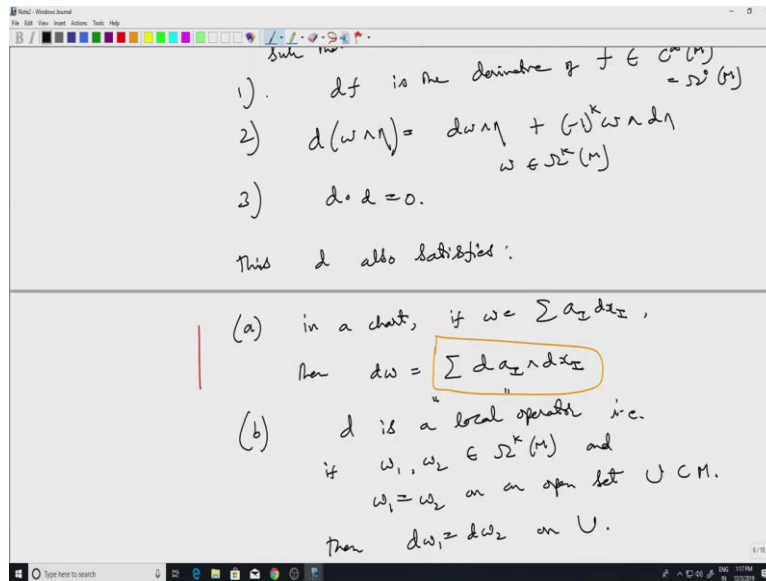 Note2 - Windows Journal
File Edit View Insert Actions Tools Help
such that
1). df is the derivative of f ∈ C^∞(M)
= Ω^0(M)
2) d(ω∧η) = dω∧η + (-1)^k ω∧dη
ω ∈ Ω^k(M)
3) d∘d = 0.
This d also satisfies:
(a) in a chart, if ω = Σ a_I dx_I,
then dω = Σ da_I ∧ dx_I
(b) d is a "local operator" i.e.
if ω_1, ω_2 ∈ Ω^k(M) and
ω_1 = ω_2 on an open set U ⊂ M.
then dω_1 = dω_2 on U.
6/10
Type here to search
ENG 3:17 PM
IN 12/3/2019